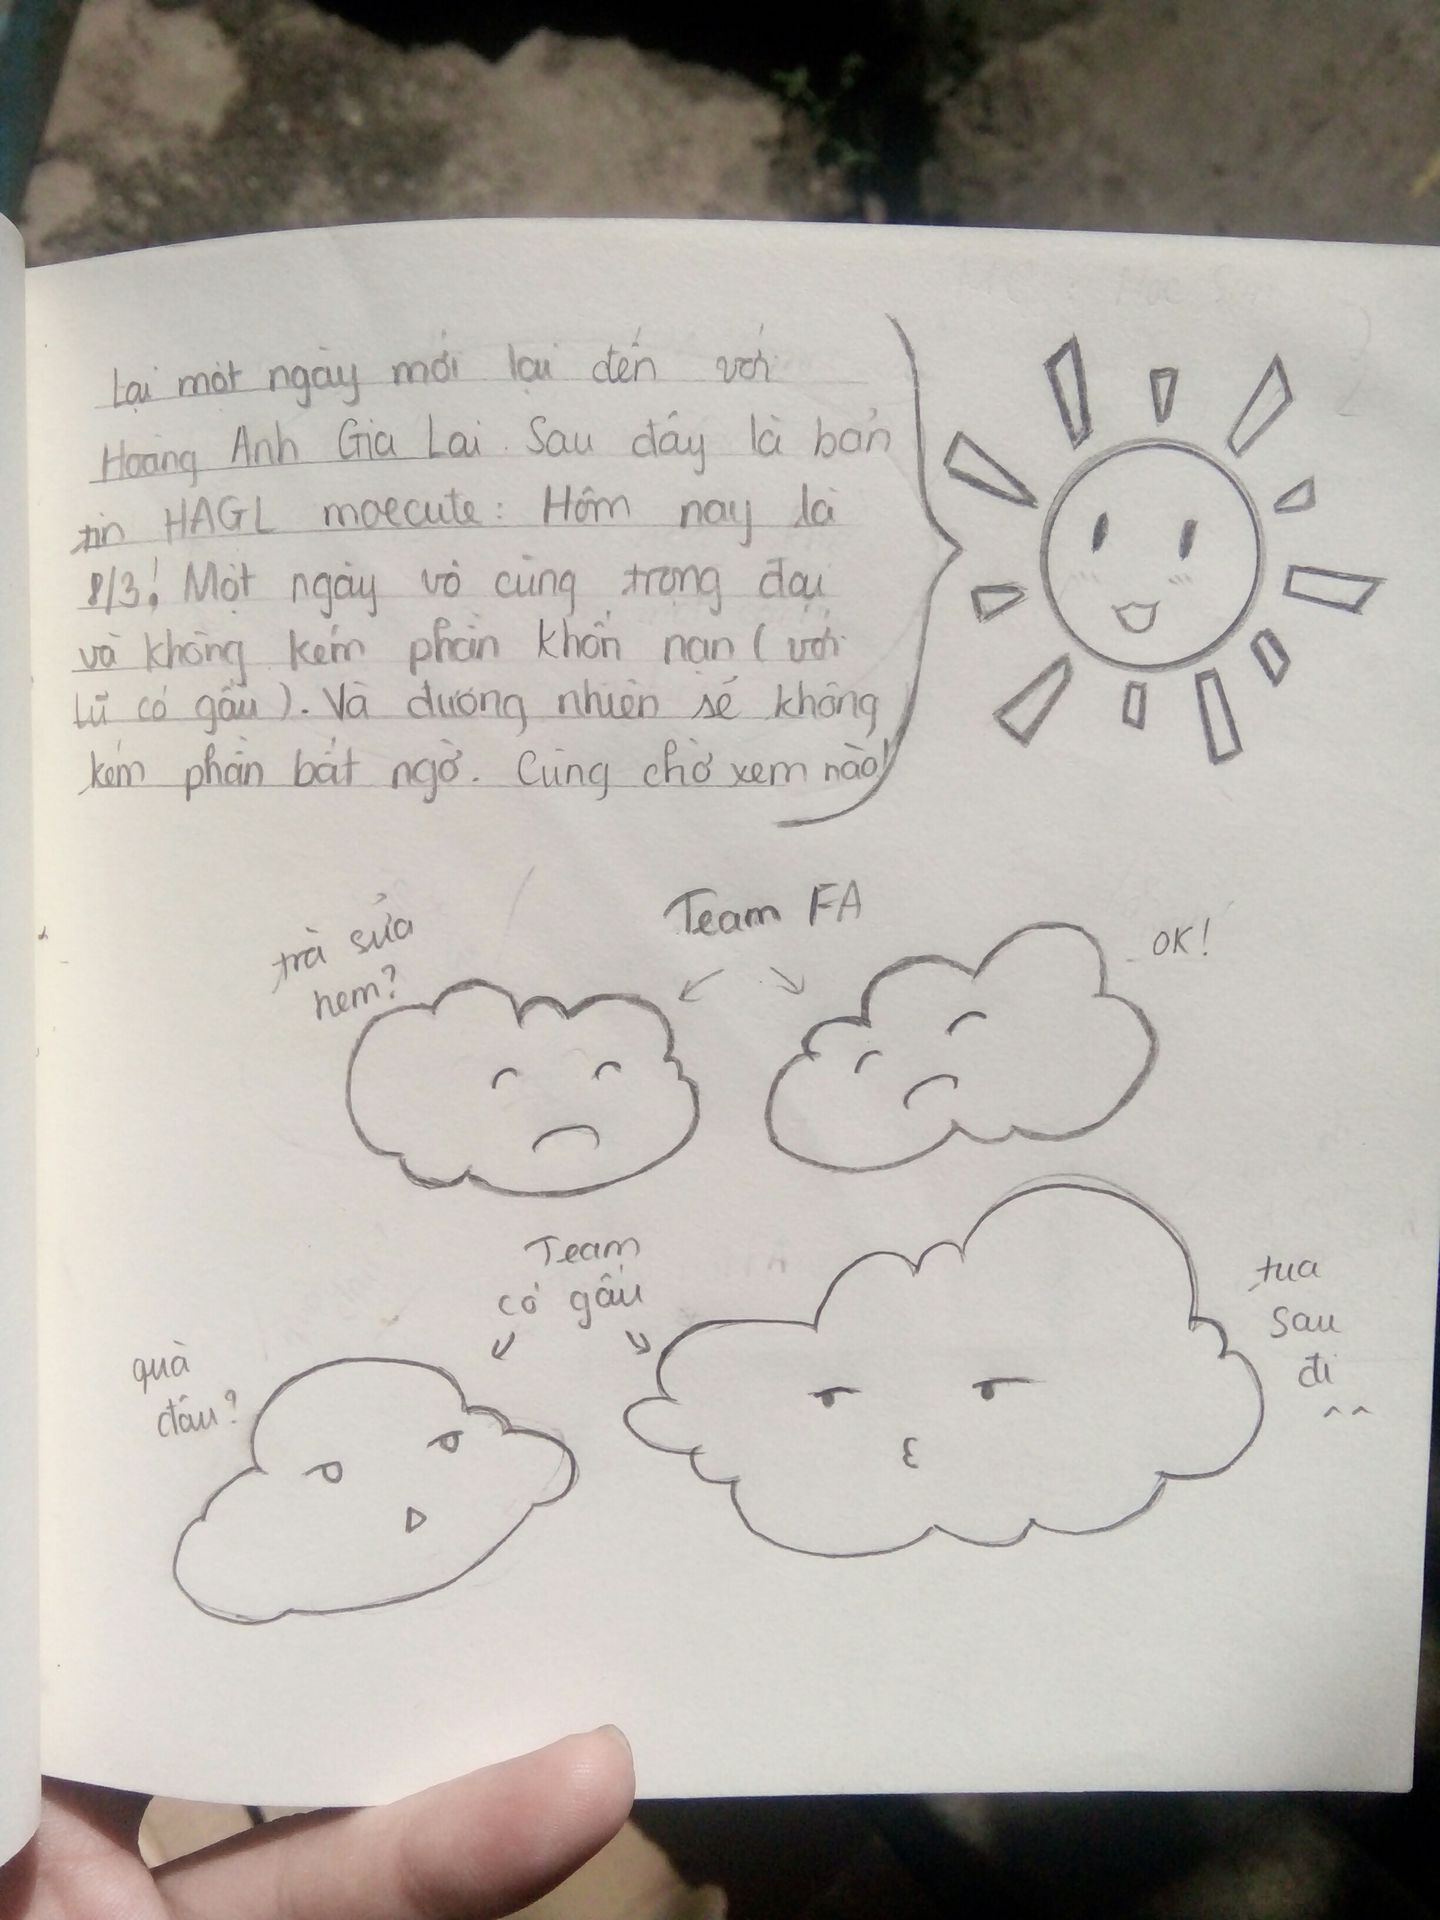 Lại một ngày mới lại đến với
Hoàng Anh Gia Lai. Sau đây là bản
tin HAGL moecute: Hôm nay là
8/3! Một ngày vô cùng trọng đại
và không kém phần khốn nạn (với
lũ có gấu). Và đương nhiên sẽ không
kém phần bất ngờ. Cùng chờ xem nào!
Team FA
trà sữa
hem?
OK!
Team
có gấu
quà
đâu?
tua
sau
đi
^^